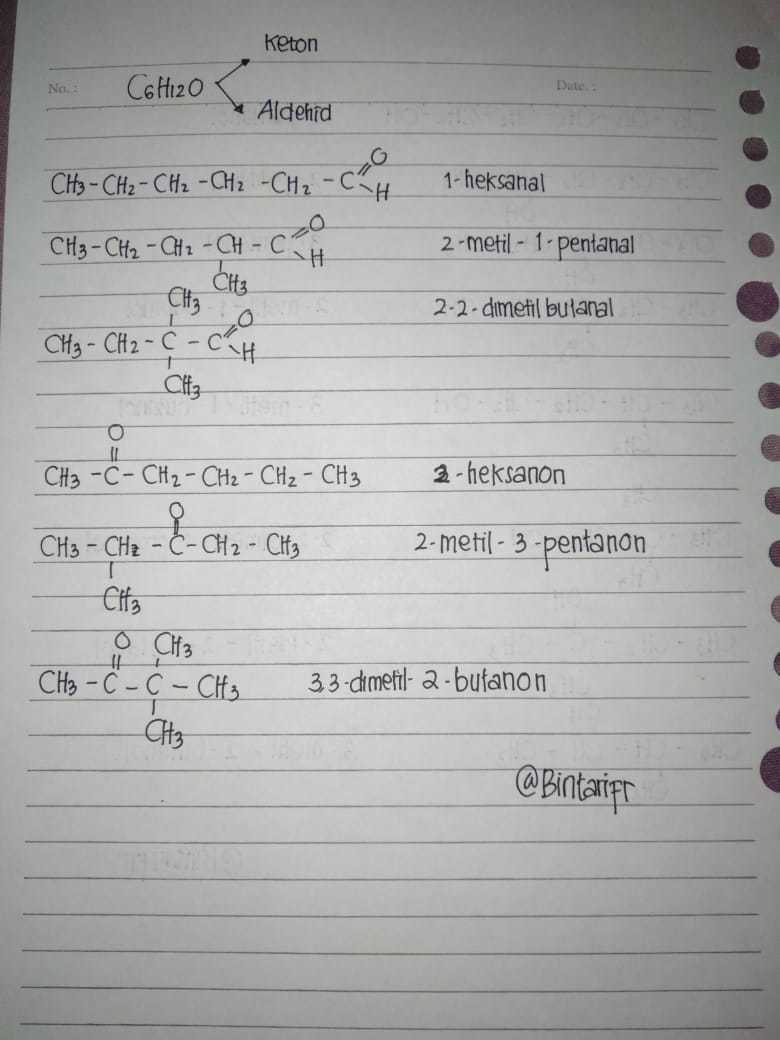 Keton
No. :
C6H12O
Date. :
Aldehid
O
CH3 - CH2 - CH2 - CH2 - CH2 - C
H
1-heksanal
O
CH3 - CH2 - CH2 - CH - C
H
2-metil-1-pentanal
CH3
CH3
2-2-dimetil butanal
O
CH3 - CH2 - C - C
H
CH3
O
CH3 - C - CH2 - CH2 - CH2 - CH3
2-heksanon
O
CH3 - CH2 - C - CH2 - CH3
2-metil-3-pentanon
CH3
O CH3
CH3 - C - C - CH3
3,3-dimetil-2-butanon
CH3
@Bintarifr